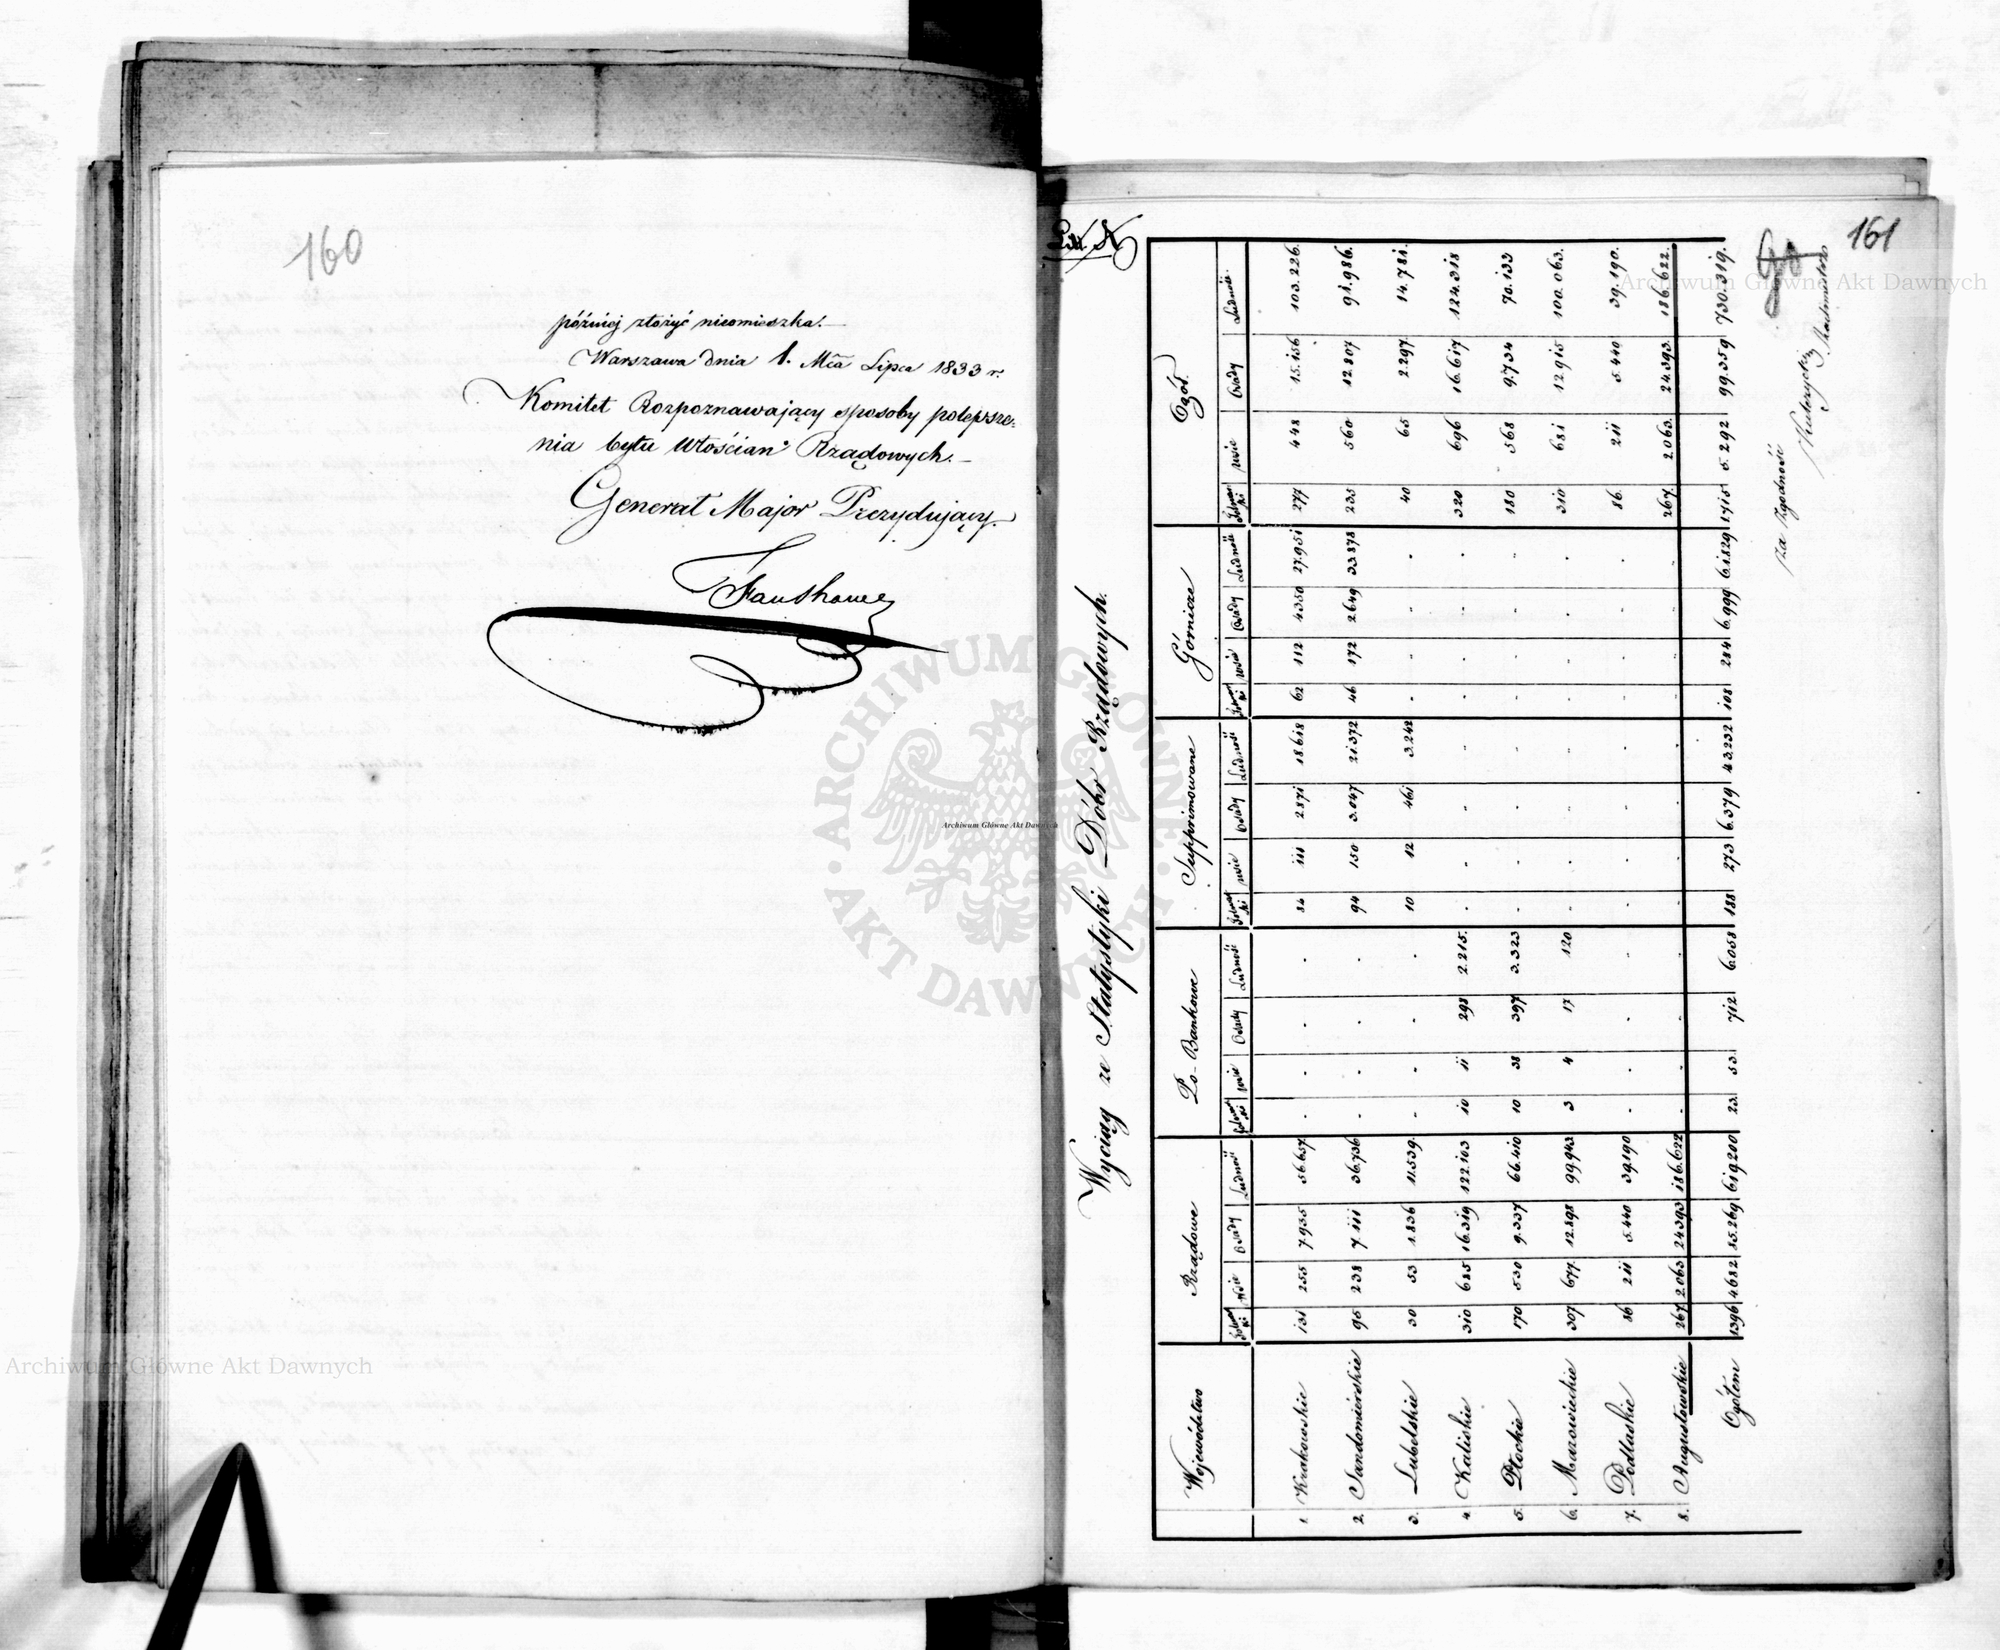 160
później złożyć nieomieszka.
Warszawa dnia 1. Mca Lipca 1833 r.
Komitet Rozpoznawający sposoby polepsze-
nia bytu Włościan Rządowych.
Generał Major Prezydujący
Archiwum Główne Akt Dawnych
ARCHIWUM GŁÓWNE AKT DAWNYCH
161
Wyciąg ze Statystyki Dóbr Rządowych.
Województwo | Rządowe | Po-Bankowe | Supprimowane | Górnicze | Ogół
Folwarki | wsie | Osady | Ludność | Folwarki | wsie | Osady | Ludność | Folwarki | wsie | Osady | Ludność | Folwarki | wsie | Osady | Ludność | Folwarki | wsie | Osady | Ludność
1. Krakowskie | 131 | 255 | 7.935 | 56.657 | . | . | . | . | 84 | 111 | 2.871 | 18.618 | 62 | 112 | 4350 | 27.951 | 277 | 448 | 15.156 | 103.226.
2. Sandomierskie | 95 | 238 | 7.111 | 36.736 | . | . | . | . | 94 | 150 | 3.047 | 21.372 | 46 | 172 | 2649 | 33.878 | 235 | 560 | 12.807 | 91.986.
3. Lubelskie | 30 | 53 | 1.836 | 11.539 | . | . | . | . | 10 | 12 | 461 | 3.242 | . | . | . | . | 40 | 65 | 2.297 | 14.781.
4. Kaliskie | 310 | 685 | 16.319 | 122.103 | 10 | 11 | 298 | 2.215. | . | . | . | . | . | . | . | . | 320 | 696 | 16.617 | 124.318
5. Płockie | 170 | 530 | 9.337 | 66.410 | 10 | 38 | 397 | 3.323 | . | . | . | . | . | . | . | . | 180 | 568 | 9.734 | 70.133
6. Mazowieckie | 307 | 677. | 12.898 | 99.943 | 3 | 4 | 17 | 120 | . | . | . | . | . | . | . | . | 310 | 681 | 12.915 | 100.063.
7. Podlaskie | 86 | 211 | 5.440 | 39.190 | . | . | . | . | . | . | . | . | . | . | . | . | 86. | 211 | 5.440 | 39.190.
8. Augustowskie | 267 | 2.063 | 24.393 | 186.622 | . | . | . | . | . | . | . | . | . | . | . | . | 267. | 2.063. | 24.393. | 186.622.
Ogółem | 1396 | 4682 | 85.269 | 619.200 | 23. | 53. | 712 | 6.058 | 188 | 273 | 6.379 | 43.232 | 108 | 284 | 6.999 | 61.829 | 1.715 | 5.292 | 99.359 | 730.319.
za Zgodność
Archiwum Główne Akt Dawnych
Archiwum Główne Akt Dawnych